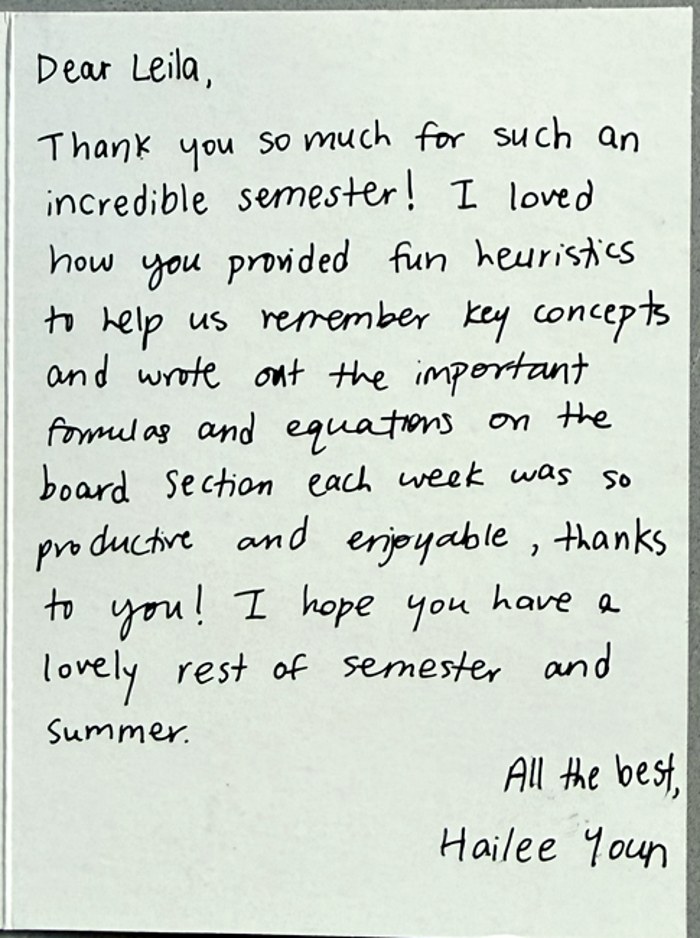 Dear Leila,
Thank you so much for such an
incredible semester! I loved
how you provided fun heuristics
to help us remember key concepts
and wrote out the important
formulas and equations on the
board section each week was so
productive and enjoyable, thanks
to you! I hope you have a
lovely rest of semester and
summer.
All the best,
Hailee Youn